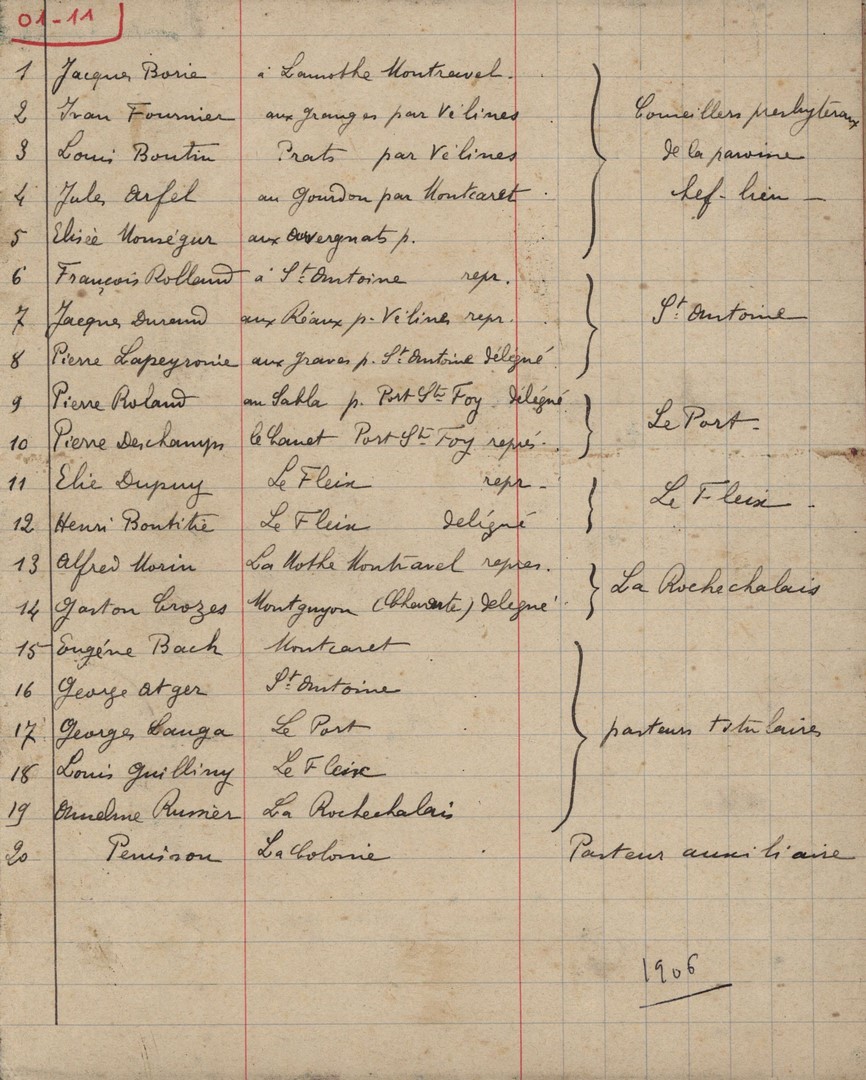 01-11
1 Jacques Borie à Lamothe Montravel.
2 Ivan Fournier aux granges par Vélines Conseillers presbytéraux
3 Louis Boutin Prats par Vélines de la paroisse
4 Jules Arfel au Gourdon par Montcaret chef-lieu -
5 Elisée Monségur aux Auvergnats p.
6 François Rolland à St Antoine repr.
7 Jacques Durand aux Réaux p. Vélines repr. St Antoine
8 Pierre Lapeyronie aux graves p. St Antoine délégné
9 Pierre Roland au Sabla p. Port Ste Foy délégné
10 Pierre Deschamps le Canet Port Ste Foy représ. Le Port -
11 Elie Dupuy Le Fleix repr -
12 Henri Boutitie Le Fleix delégné Le Fleix -
13 Alfred Morin La Mothe Montravel repres.
14 Gaston Crozes Montguyon (Charente) delegné La Rochechalais
15 Eugéne Bach Montcaret
16 George Atger St Antoine
17 Georges Lauga Le Port pasteurs titulaires
18 Louis Guilliny Le Fleix
19 Anselme Russier La Rochechalais
20 Penisson La Colonie Pasteur auxiliaire
1906